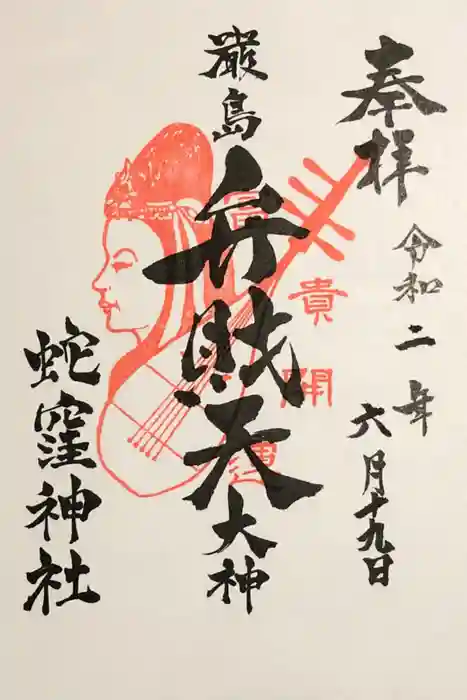 奉拝
令和二年
六月十九日
嚴島
弁財天
大神
富貴開運
蛇窪神社